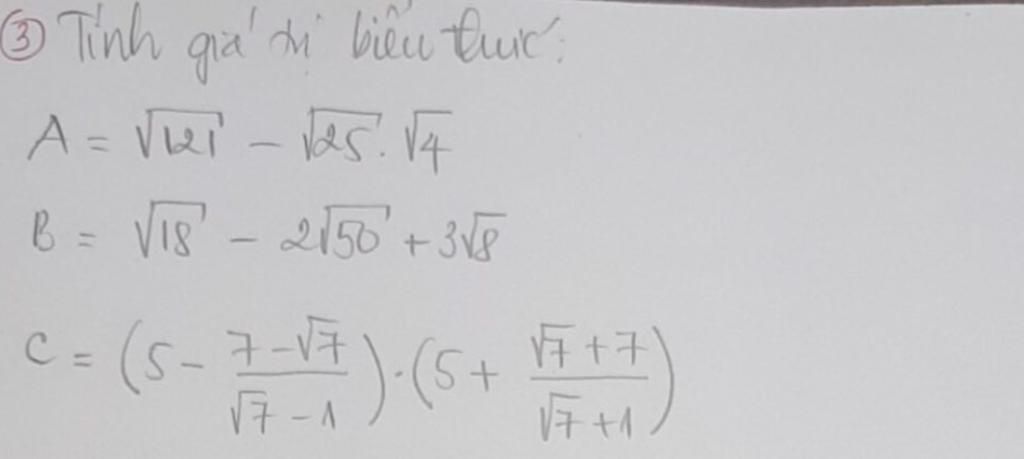 ③ Tính giá trị biểu thức:
A = √121 - √25 . √4
B = √18 - 2√50 + 3√8
C = (5 - (7 - √7)/(√7 - 1)) . (5 + (√7 + 7)/(√7 + 1))